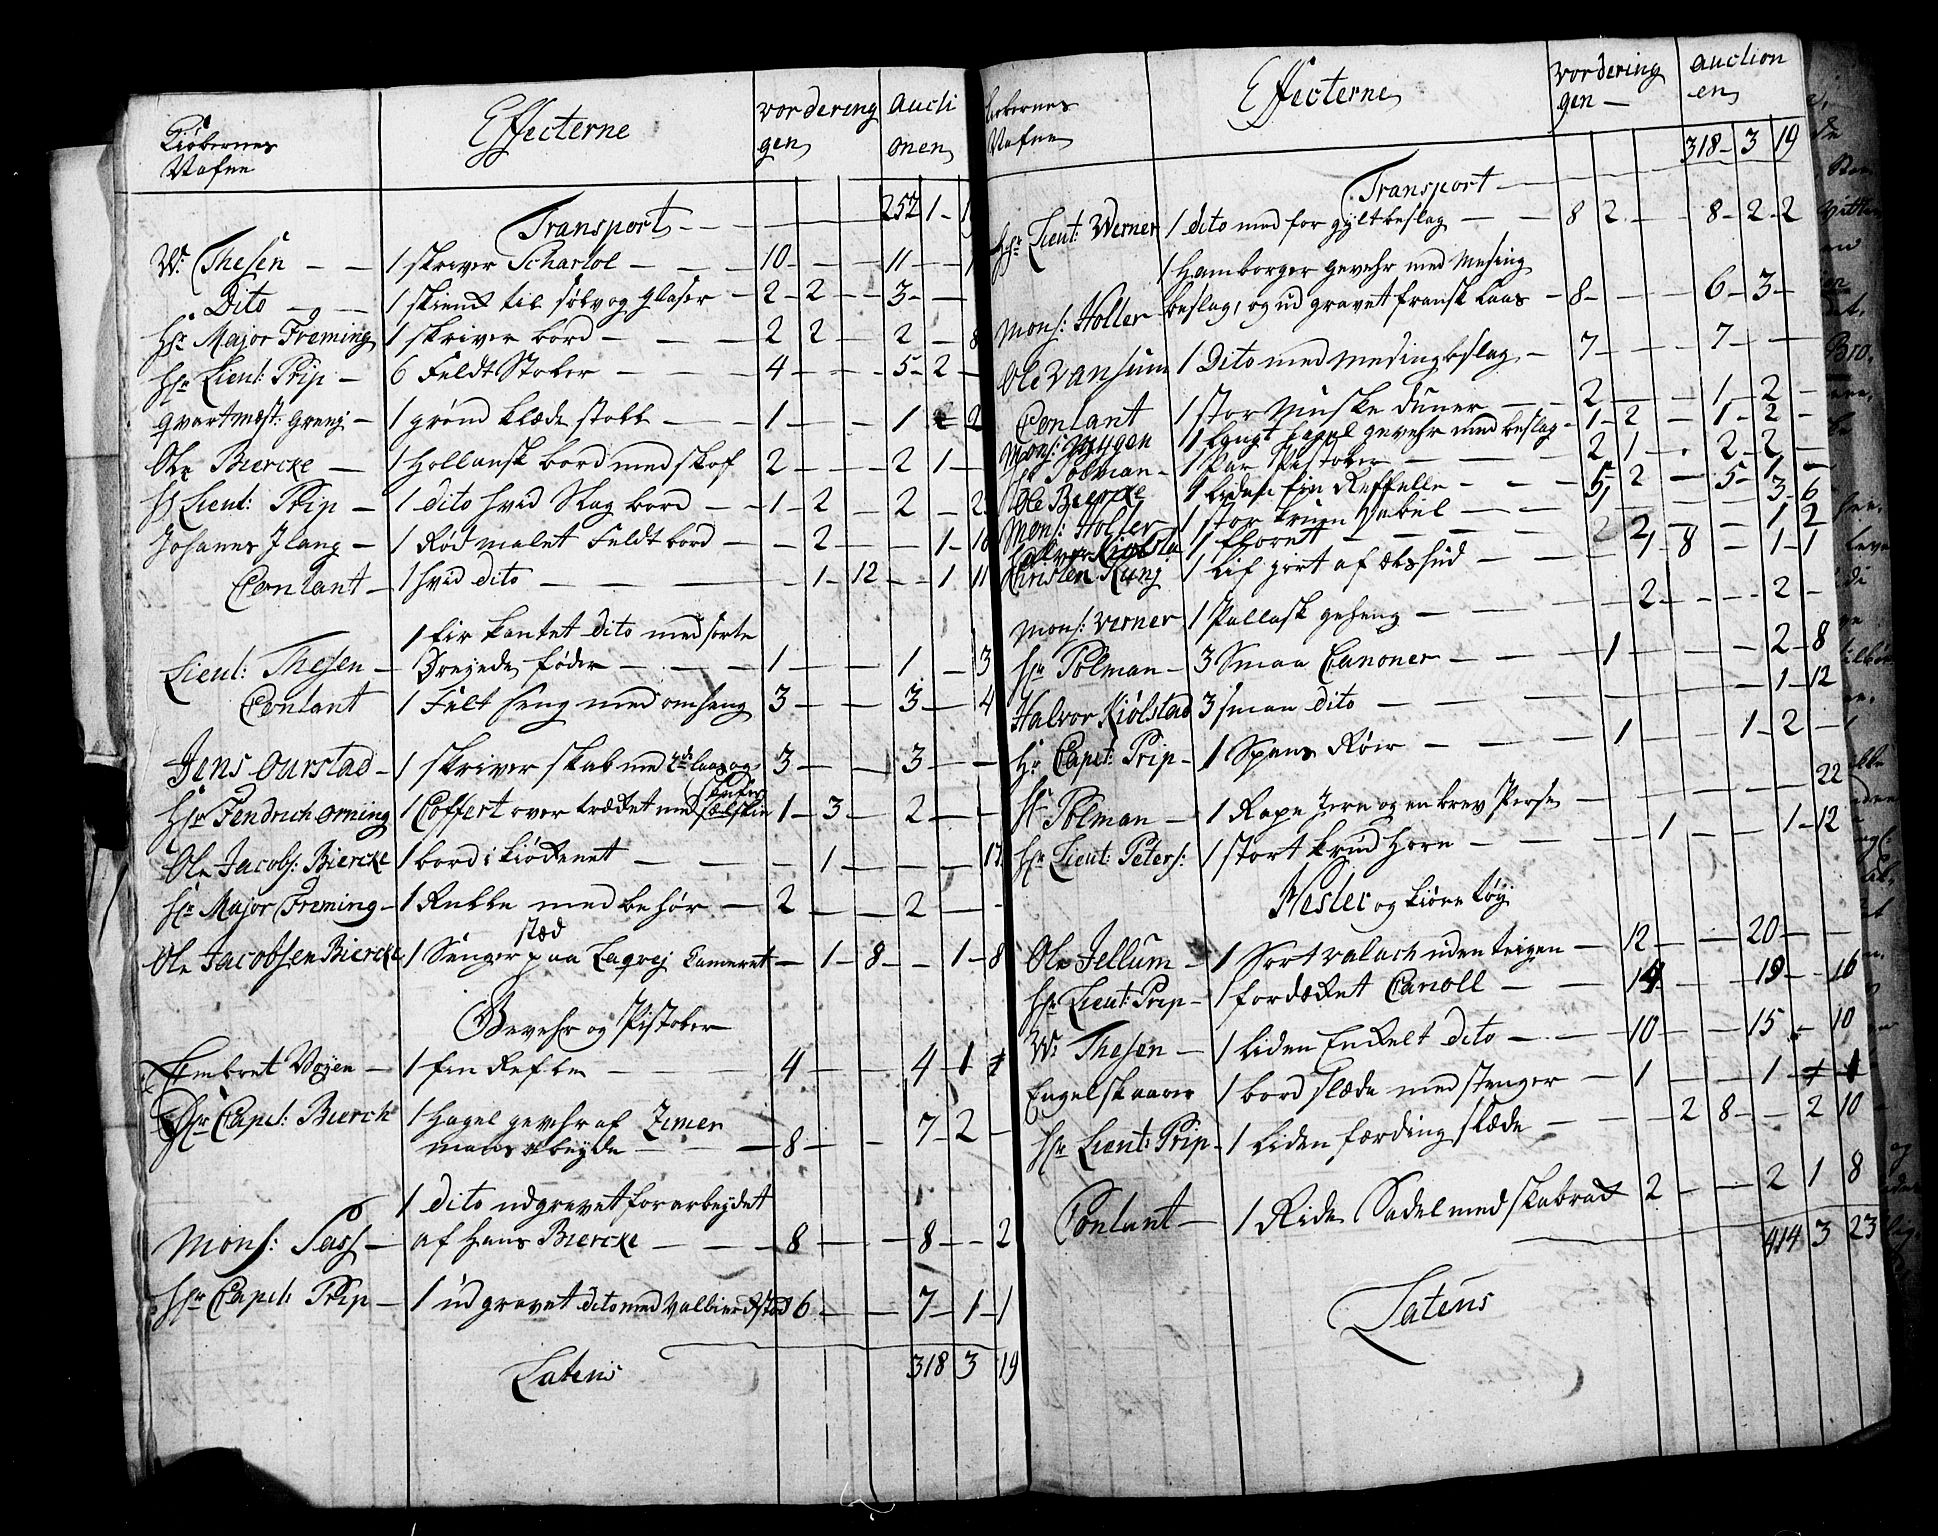 Kiøbernes Nafne Effecterne vordering gen auctionen
Transport - - 252 1
Wr: Thesen - - 1 skriver Schartol - - 10 - 11 -
Dito - - 1 skienk til sølv og glaser - 2 - 2 - 3 -
Hr Major Freming 1 skriver bord - - 2 2 - 2 - 8
Hr Lieut: Prip - 6 Feldt Stoler - - 4 - 5 - 2 -
qvartmest: Grenj - 1 grønd klæde stoll - - 1 - 1 2
Ole Biercke - 1 Hollansk bord med skof 2 - 2 1 -
Hr Lieut: Prip - 1 dito hvid Slag bord - - 1 - 2 - 2 - 2
Johannes Jlang - 1 Rød malet Feldt bord - - 2 - 1 - 16
Conlant - 1 hvid dito - - 1 - 12 - 1 11
1 fir kantet dito med sorte
Lieut: Thesen - Dreyede føder - - 1 - 1 - 3
Conlant 1 Felt seng med omheng 3 - 3 - 4
Jens Ourstad - 1 skriver skab med 2de laas og 3 - 3 -
Hr Fendrich Orning 1 Coffert over trækket med sælskin 1 - 3 - 2 -
Ole Jacobs: Biercke 1 bord i kiøkenet - - 1 - 17
Hr Major Freming - 1 Rulle med behør - 2 - 2 -
Ole Jacobsen Biercke 1 Senger stæd paa Laqvej Cameret - 1 - 8 - 1 - 8
Gevehr og Pistoler
Embret Vøyen - 1 fin Refle - 4 - 4 - 1
Hr Capit: Bierch 1 Hagel gevehr af Zimer
mans arbeyde - - 8 - 7 - 2 -
1 dito udgravet forarbeydet
Mons: Sass - af Hans Biercke - - 8 - 8 - 2
Hr Capit: Prip - 1 udgravet dito med valbierckstok 6 - 7 - 1 - 1
Latens 318 3 19
Kiøbernes Nafne Effecterne vordering gen - auctionen
318 - 3 19
Transport -
Hr Lieut: Werner 1 dito med for gylt beslag - - 8 2 - 8 - 2 - 2
1 Hamborger gevehr med Mesing
Mons: Holter beslag, og ud gravet fransk laas - 8 - 6 - 3 -
Ole Vansum 1 Dito med mesing beslag - 7 - 7 -
Conlant 1 stor Muske duner - - 2 - 1 - 2 -
Mons: Mygen 1 langt hagel gevehr med beslag - 1 - 2 - 1 - 2 -
Hr Polman - 1 Par Pistoler - 2 1 - 2 - 2 -
Ole Biercke 1 liden fin Reffelle - - 5 2 - 5 - 1 -
Mons: Holter - 1 stor krum Sabel - - 1 - 3 - 6
Halvor Kiølstad 1 floret - - 2 - 1 2
Christen Kunj 1 Lif giort af elshud - - 2 1 8 - 1 - 1
Mons: Verner 1 Pallask geheng - - 2 - 2 -
Hr Polman - 3 Smaa Canoner - - 1 - 2 - 8
Halvor Kiølstad 3 smaa dito - - 1 - 12
Hr Capit: Prip - 1 Spans Røer - - 1 - 1 - 2 -
Hr Polman - 1 Rape Jern og en brev Perse - - 22
Hr Lieut: Peters: 1 stort krud Horn - - 1 - 1 - 12
Hester og kiøre tøy
Ole Jellum - 1 Sort valach uden teigen - 12 - 20 -
Hr Lieut: Prip - 1 fordækket Carioll - - 14 - 19 - 16
Wr: Thesen - 1 liden Enkelt dito - - 10 - 15 - 10
Engelskaaren 1 bord slæde med stenger - 1 - 1 -
Hr Lieut: Prip - 1 liden færding slæde - - 2 8 - 2 10
Conlant - 1 Ride Sadel med skabrak 2 - 2 1 8
414 3 23
Latens